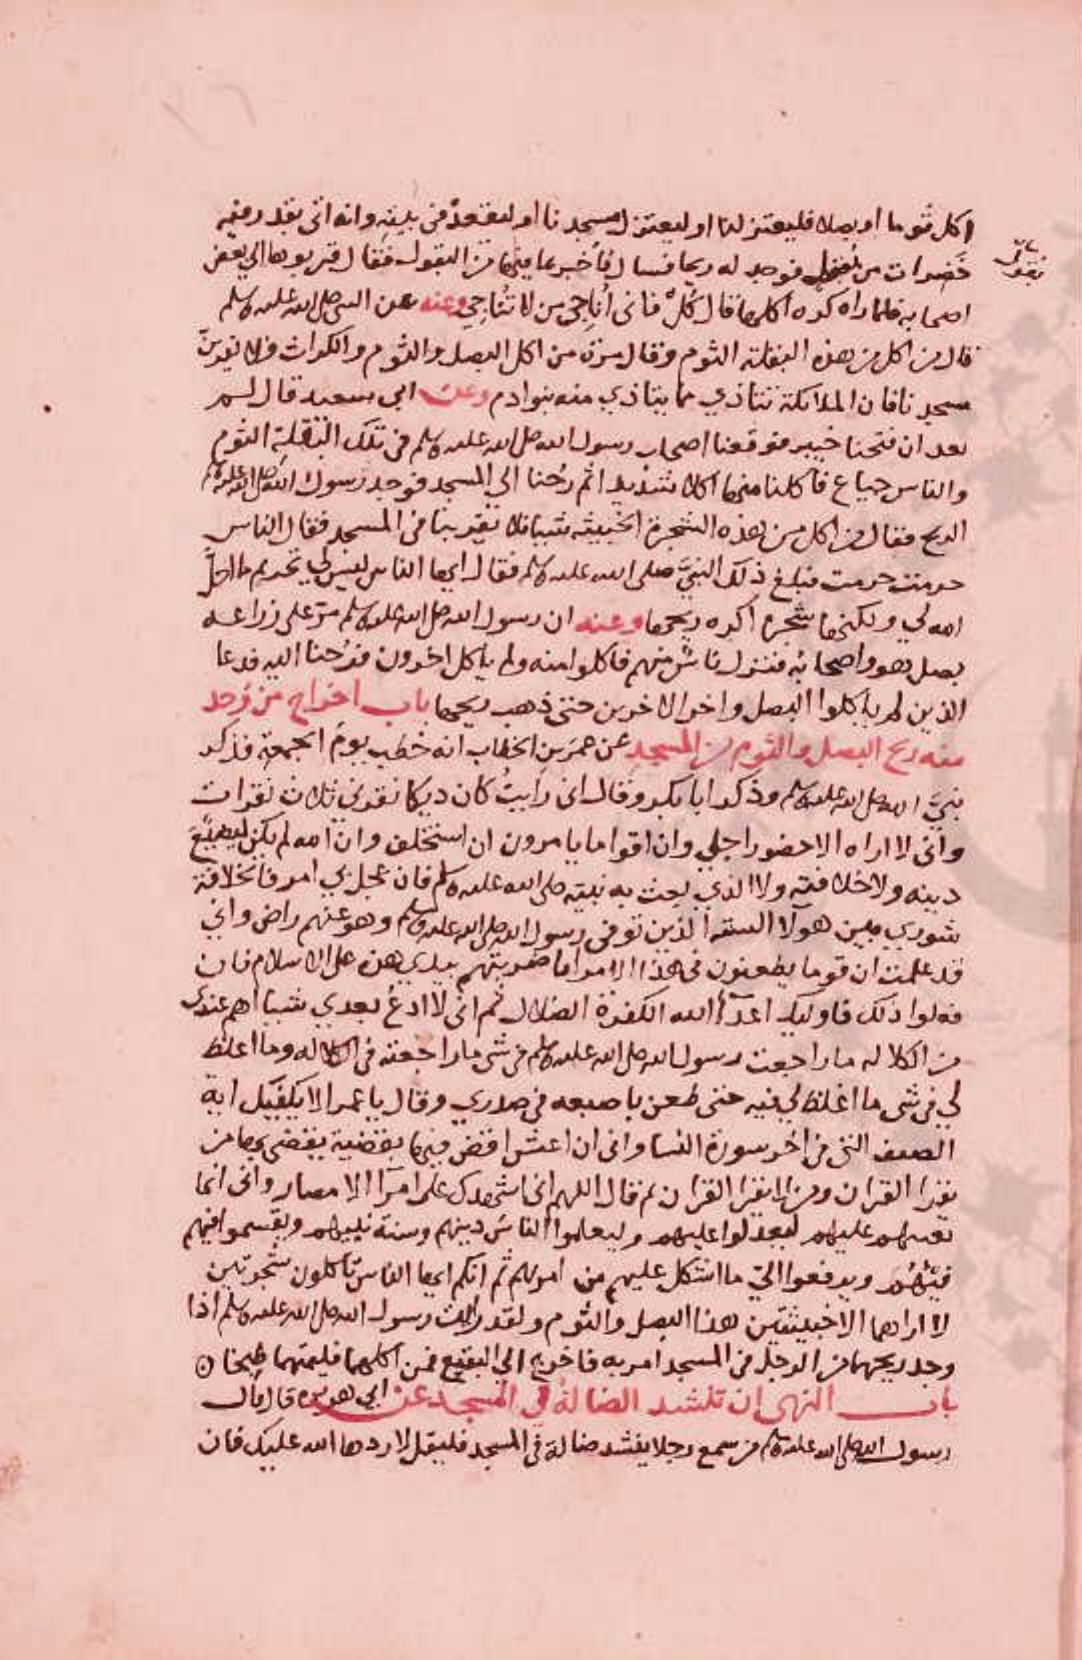 اكل ثوما او بصلا فليعتزلنا او ليعتزل مسجدنا او ليقعد في بيته وانه اتى بقدر فيه
خضرات من بقول فوجد له ريحا فسال فاخبر بما فيها من البقول فقال قربوها الى بعض
اصحابه فلما راه كره اكلها قال كل فاني اناجي من لا تناجي وعنه عن النبي صلى الله عليه وسلم
قال من اكل من هذه البقلة الثوم وقال مرة من اكل البصل والثوم والكراث فلا يقربن
مسجدنا فان الملائكة تتاذي مما يتاذي منه بنوادم وعن ابي سعيد قال لم
نعد ان فتحنا خيبر فوقعنا اصحاب رسول الله صلى الله عليه وسلم في تلك البقلة الثوم
والناس جياع فاكلنا منها اكلا شديدا ثم رحنا الي المسجد فوجد رسول الله صلى الله عليه وسلم
الريح فقال من اكل من هذه الشجرة الخبيثة شييا فلا يقربنا في المسجد فقال الناس
حرمت حرمت فبلغ ذلك النبي صلى الله عليه وسلم فقال ايها الناس ليس لي تحريم ما احل
الله لي ولكنها شجرة اكره ريحها وعنه ان رسول الله صلى الله عليه وسلم مر على زراعة
بصل هو واصحابه فنزل ناس منهم فاكلوا منه ولم ياكل اخرون فرحنا اليه فدعا
الذين لم ياكلوا البصل واخر الاخرين حتى ذهب ريحها باب اخراج من وجد
منه ريح البصل والثوم من المسجد عن عمر بن الخطاب انه خطب يوم الجمعة فذكر
نبي الله صلى الله عليه وسلم وذكر ابا بكر وقال اني رايت كان ديكا نقرني ثلاث نقرات
واني لا اراه الا حضور اجلي وان اقواما يامرون ان استخلف وان الله لم يكن ليضيع
دينه ولا خلافته ولا الذي بعث به نبيه صلى الله عليه وسلم فان عجل بي امر فالخلافة
شوري بين هولا الستة الذين توفي رسول الله صلى الله عليه وسلم وهو عنهم راض واني
قد علمت ان قوما يطعنون في هذا الامر انا ضربتهم بيدي هذه على الاسلام فان
فعلوا ذلك فاوليك اعدآ الله الكفرة الضلال ثم اني لا ادع بعدي شيا اهم عندي
من الكلالة ما راجعت رسول الله صلى الله عليه وسلم في شي ما راجعته في الكلالة وما اغلظ
لي في شي ما اغلظ لي فيه حتى طعن باصبعه في صدري وقال يا عمر الا يكفيك اية
الصيف التي في اخر سورة النسا واني ان اعش اقض فيها بقضية يقضي بها من
يقرا القران ومن لا يقرا القران ثم قال اللهم اني اشهدك على امرآ الامصار واني انما
بعثتهم عليهم ليعدلوا عليهم وليعلموا الناس دينهم وسنة نبيهم ويقسموا فيهم
فيئهم ويرفعوا الي ما اشكل عليهم من امرهم ثم انكم ايها الناس تاكلون شجرتين
لا اراهما الا خبيثتين هذا البصل والثوم ولقد رايت رسول الله صلى الله عليه وسلم اذا
وجد ريحهما من الرجل في المسجد امر به فاخرج الي البقيع فمن اكلهما فليمتهما طبخا
باب النهي ان تنشد الضالة في المسجد عن ابي هريرة قال قال
رسول الله صلى الله عليه وسلم من سمع رجلا ينشد ضالة في المسجد فليقل لا ردها الله عليك فان